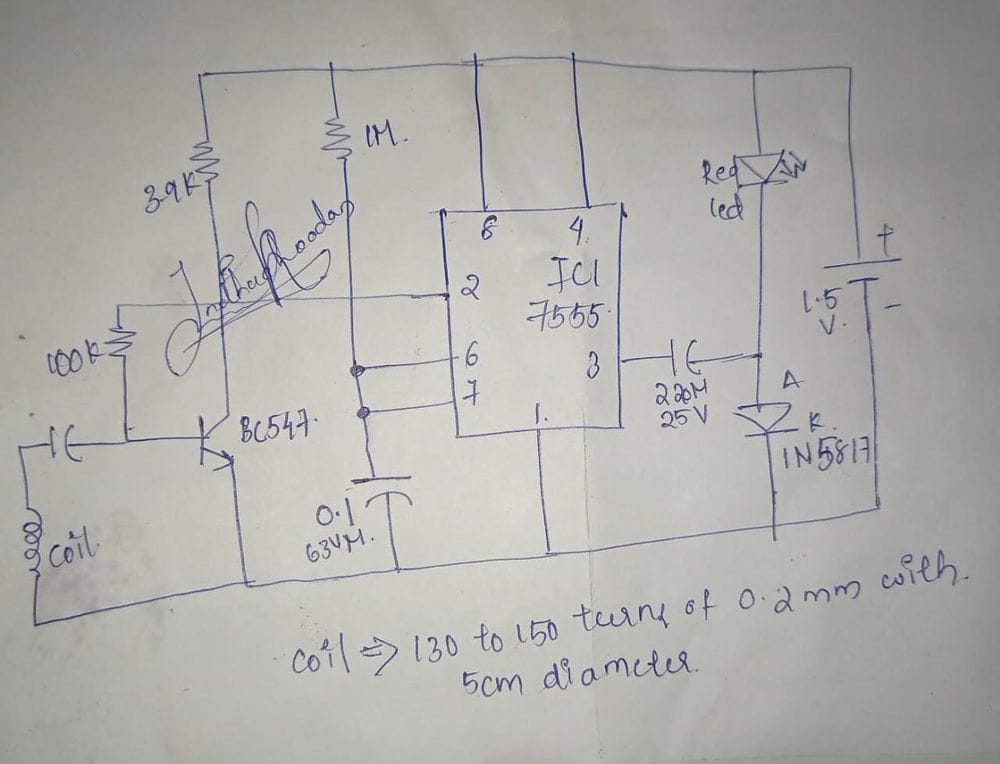 1M.
3.9K
Red
led
8
4
2
IC1
7555
6
7
3
1.
+
1.5
V.
-
100K
BC547.
220M
25V
A
K.
1N5817
0.1
63VM.
coil.
coil ⇒ 130 to 150 turns of 0.2mm with.
5cm diameter.